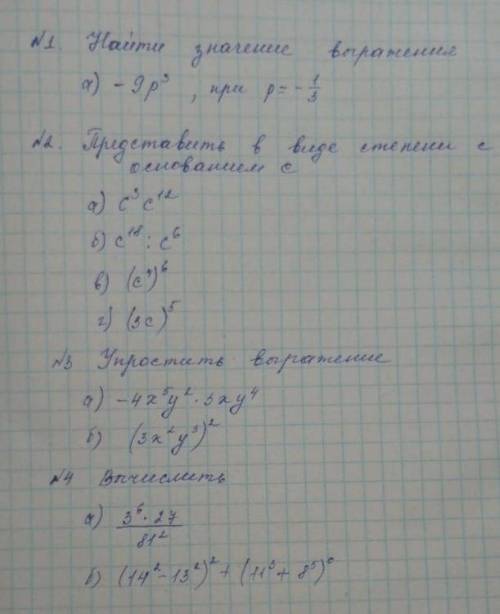 №1. Найти значение выражения
а) - 9p³ , при p = - 1/3
№2. Представить в виде степени с
основанием с
а) c³ c¹²
б) c¹⁸ : c⁶
в) (c⁴)⁶
г) (3c)⁵
№3 Упростить выражение
а) -4x⁵y² · 3xy⁴
б) (3x²y³)²
№4 Вычислить
а) 3⁶ · 27 / 81²
б) (14² - 13²)² + (11³ + 8⁵)⁰